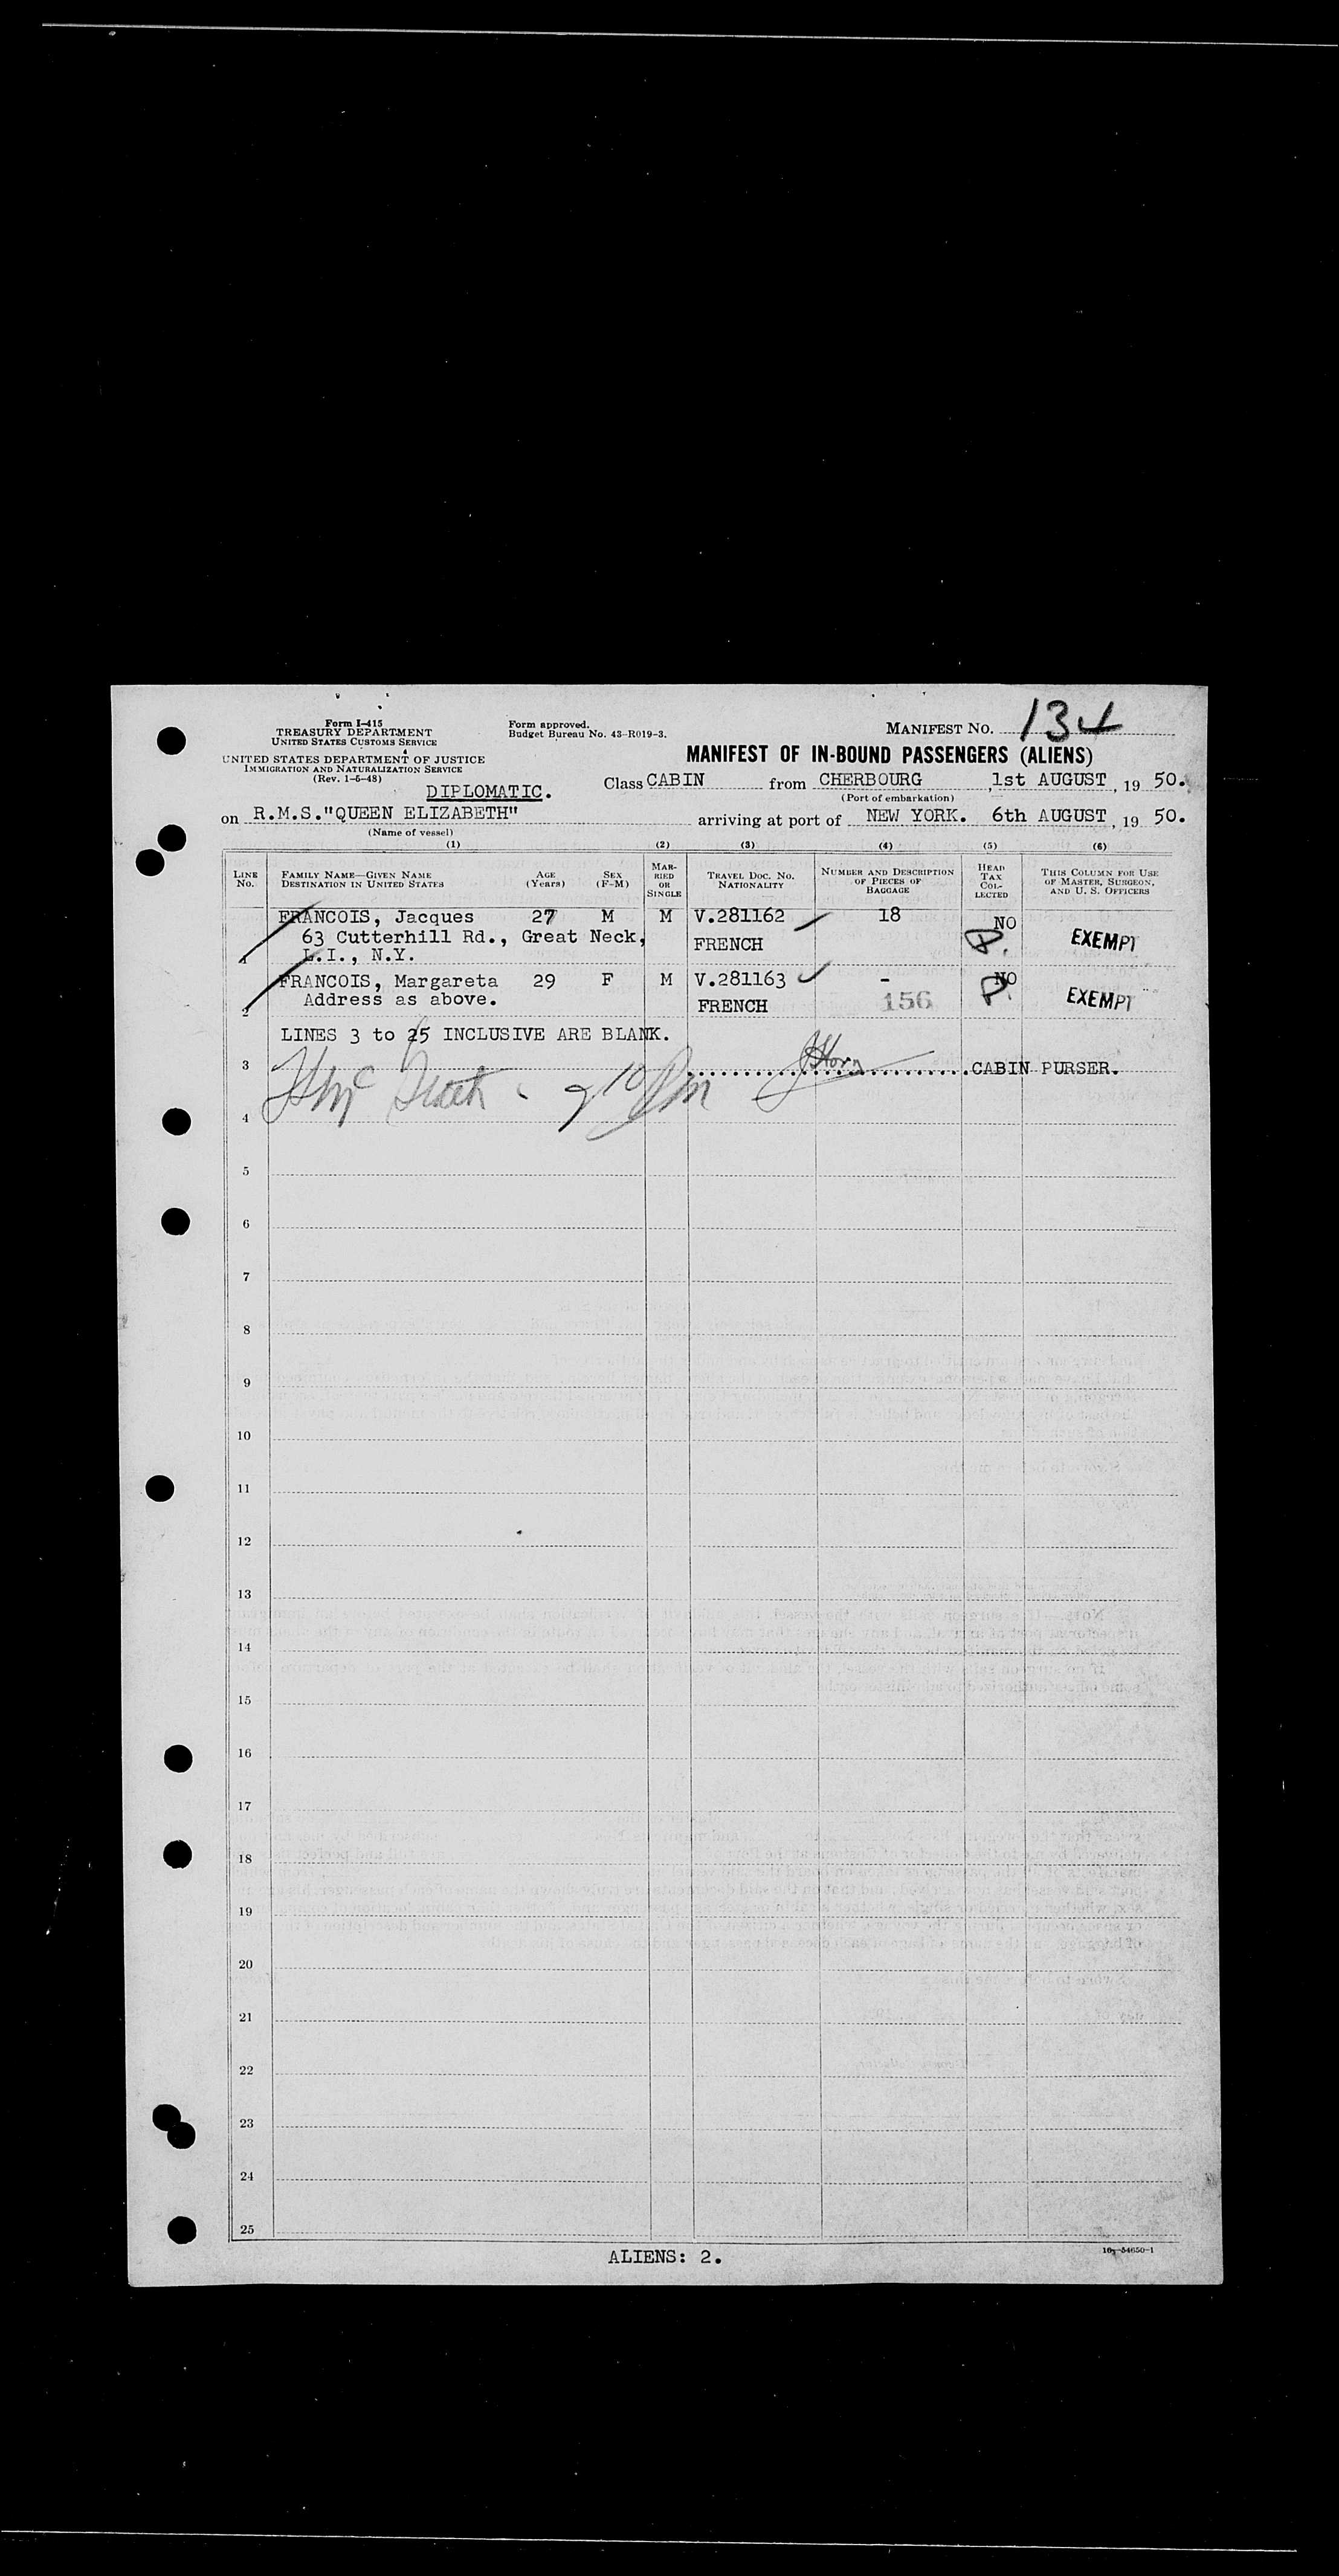 Form I-415
TREASURY DEPARTMENT
UNITED STATES CUSTOMS SERVICE
UNITED STATES DEPARTMENT OF JUSTICE
IMMIGRATION AND NATURALIZATION SERVICE
(Rev. 1-6-48)
Form approved.
Budget Bureau No. 43-R019-3.
MANIFEST NO. 134
MANIFEST OF IN-BOUND PASSENGERS (ALIENS)
DIPLOMATIC.
Class CABIN from CHERBOURG, 1st AUGUST, 19 50.
(Port of embarkation)
on R.M.S."QUEEN ELIZABETH" arriving at port of NEW YORK. 6th AUGUST, 19 50.
(Name of vessel)
(1) (2) (3) (4) (5) (6)
LINE NO. FAMILY NAME—GIVEN NAME DESTINATION IN UNITED STATES AGE (Years) SEX (F-M) MARRIED OR SINGLE TRAVEL DOC. NO. NATIONALITY NUMBER AND DESCRIPTION OF PIECES OF BAGGAGE HEAD TAX COLLECTED THIS COLUMN FOR USE OF MASTER, SURGEON, AND U. S. OFFICERS
FRANCOIS, Jacques 27 M M V.281162 18 NO
63 Cutterhill Rd., Great Neck, FRENCH P. EXEMPT
1 L.I., N.Y.
FRANCOIS, Margareta 29 F M V.281163 - NO
Address as above. FRENCH 156 P. EXEMPT
2
LINES 3 to 25 INCLUSIVE ARE BLANK.
3 CABIN PURSER.
4
5
6
7
8
9
10
11
12
13
14
15
16
17
18
19
20
21
22
23
24
25
ALIENS: 2.
16-54650-1